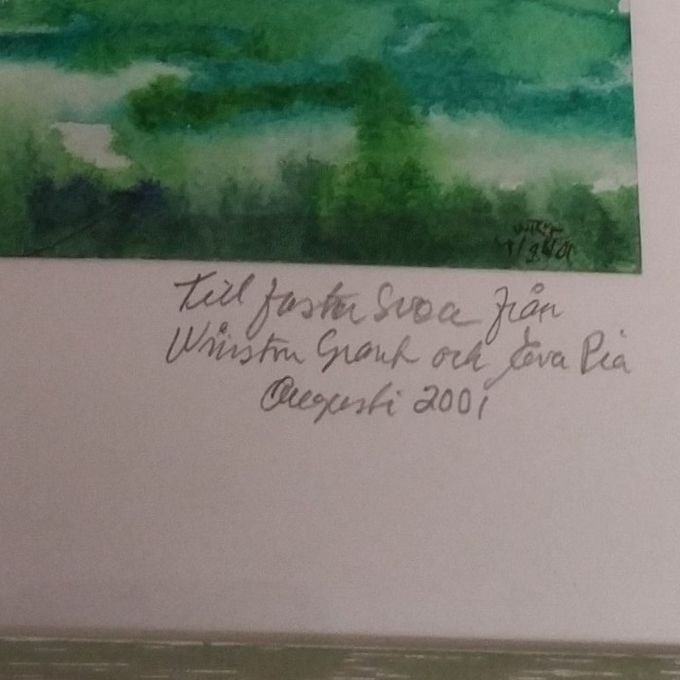 Till faster Svea från
Winston Grant och Eva Pia
Augusti 2001